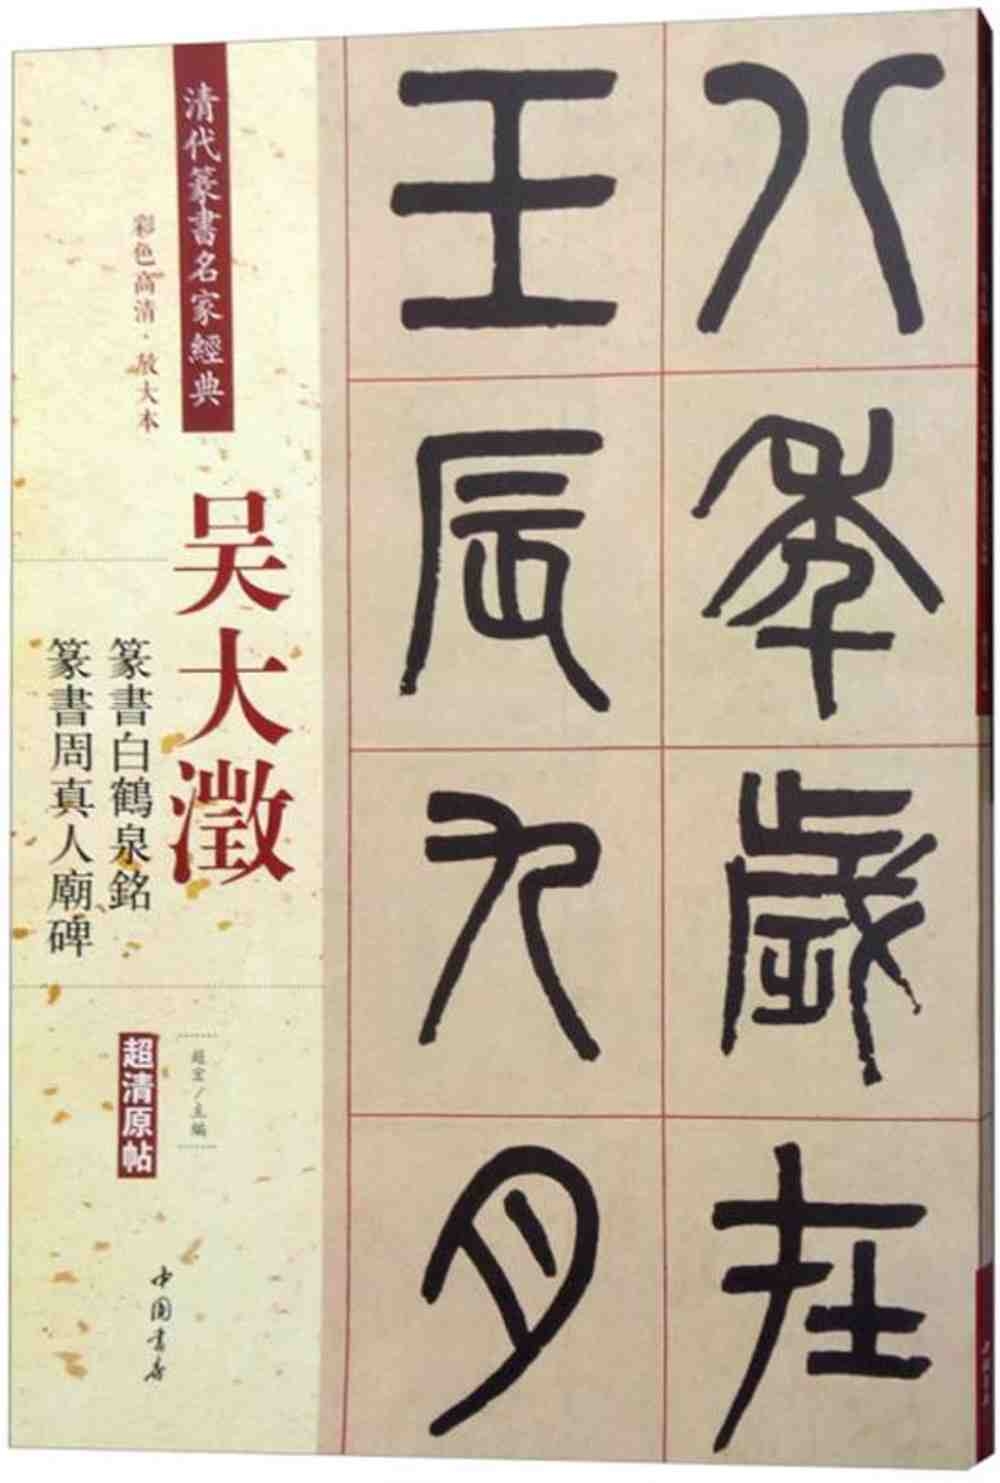 八年歲在
壬辰九月
清代篆書名家經典
彩色高清·放大本
吴大澂
篆書白鶴泉銘
篆書周真人廟碑
超宏／主編
超清原帖
中国書店